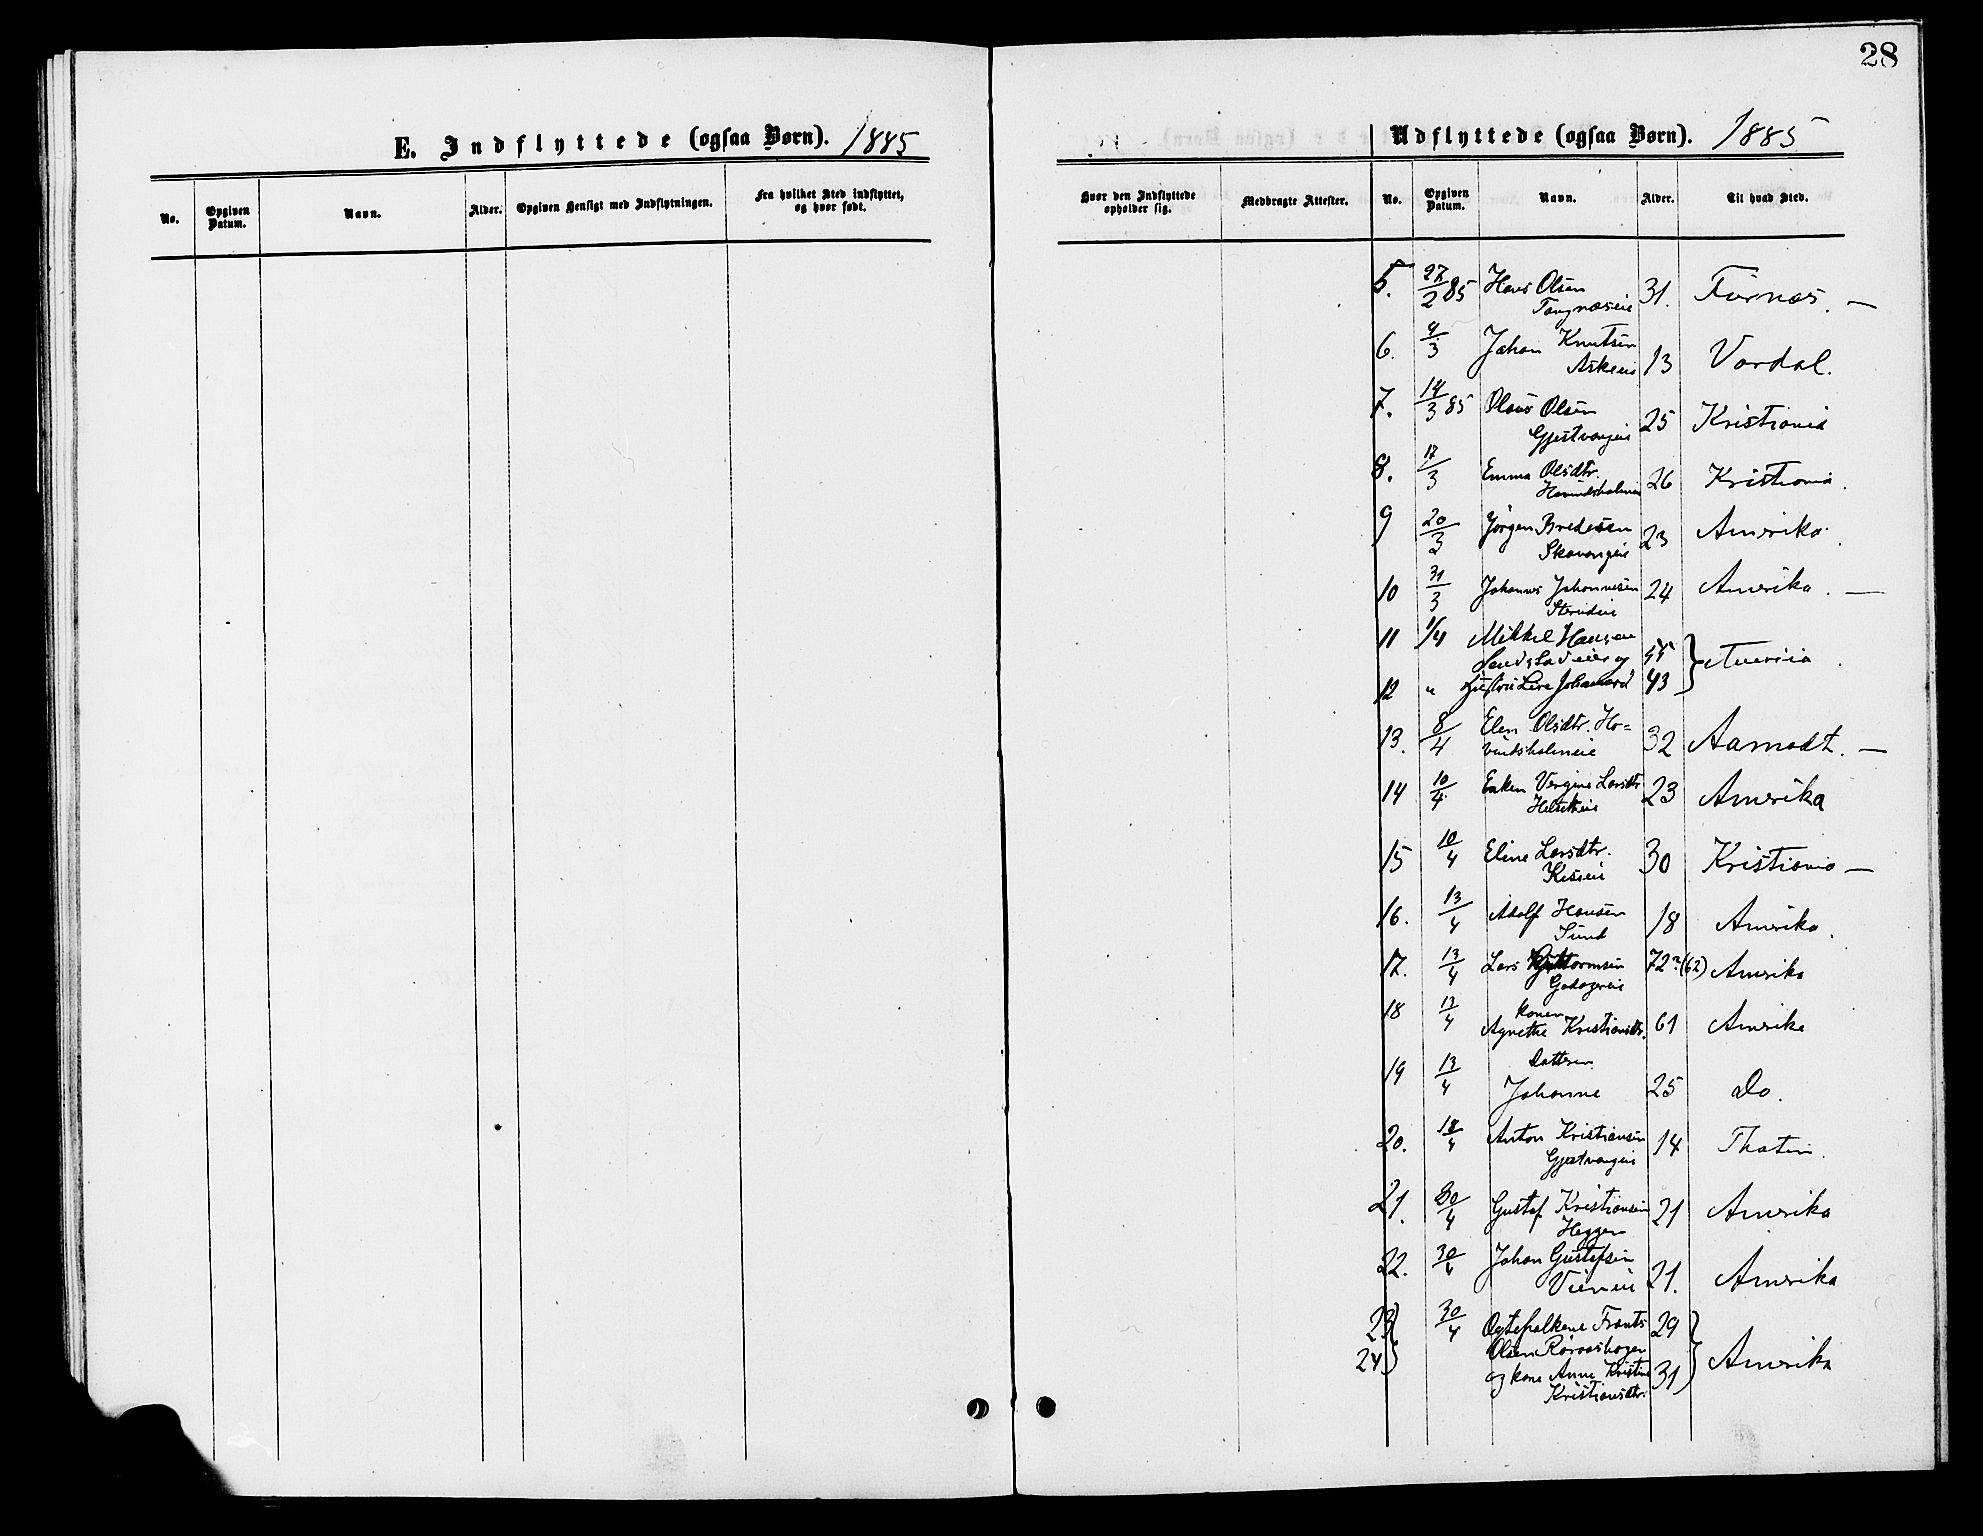 28
E. Indflyttede (ogsaa Børn). 1885
No. Opgiven Datum. Navn. Alder. Opgiven Hensigt med Indflytningen. Fra hvilket Sted indflyttet, og hvor født.
Udflyttede (ogsaa Børn). 1885
Hvor den Indflyttede opholder sig. Medbragte Attester. No. Opgiven Datum. Navn. Alder. Til hvad Sted.
5. 27/2 85 Hans Olsen 31. Furnæs. —
Tangnæseie
6. 4/3 Johan Knutsen 13 Vardal.
Askeeie
7. 14/3 85 Olaus Olsen 25 Kristiania
Gjestvangeie
8. 17/3 Emma Olsdtr. 26 Kristiania.
9 20/3 Jørgen Bredesen 23 Amerika.
Skavangeie
10 31/3 Johannes Johannesen 24 Amerika. —
11 1/4 Mikkel Hansen 55
12 " Hustru Johannesd 43
13. 8/4 Elen Olsdtr. Ho=
vindsholmeie 32 Aamodt. —
14 10/4 Larsdtr 23 Amerika
15 10/4 Eline Larsdtr. 30 Kristiania —
Kiseeie
16. 13/4 Adolf Hansen 18 Amerika.
Sund
17. 13/4 Lars Guttormsen 72?(62) Amerika
18 13/4 konen
Agnethe Kristiansdtr. 61 Amerika
19 13/4 Datteren
Johanne 25 Do.
20. 18/4 Anton Kristiansen 14
Gjestvangeie
21. 30/4 Gustaf Kristiansen 21 Amerika
Heggen
22. 30/4 Johan Gustafsen
21. Amerika
23 30/4 Ægtefolkene Frants 29
24 Olsen Røraashagen Amerika
og kone Anne Kristine 31
Kristiansdtr.